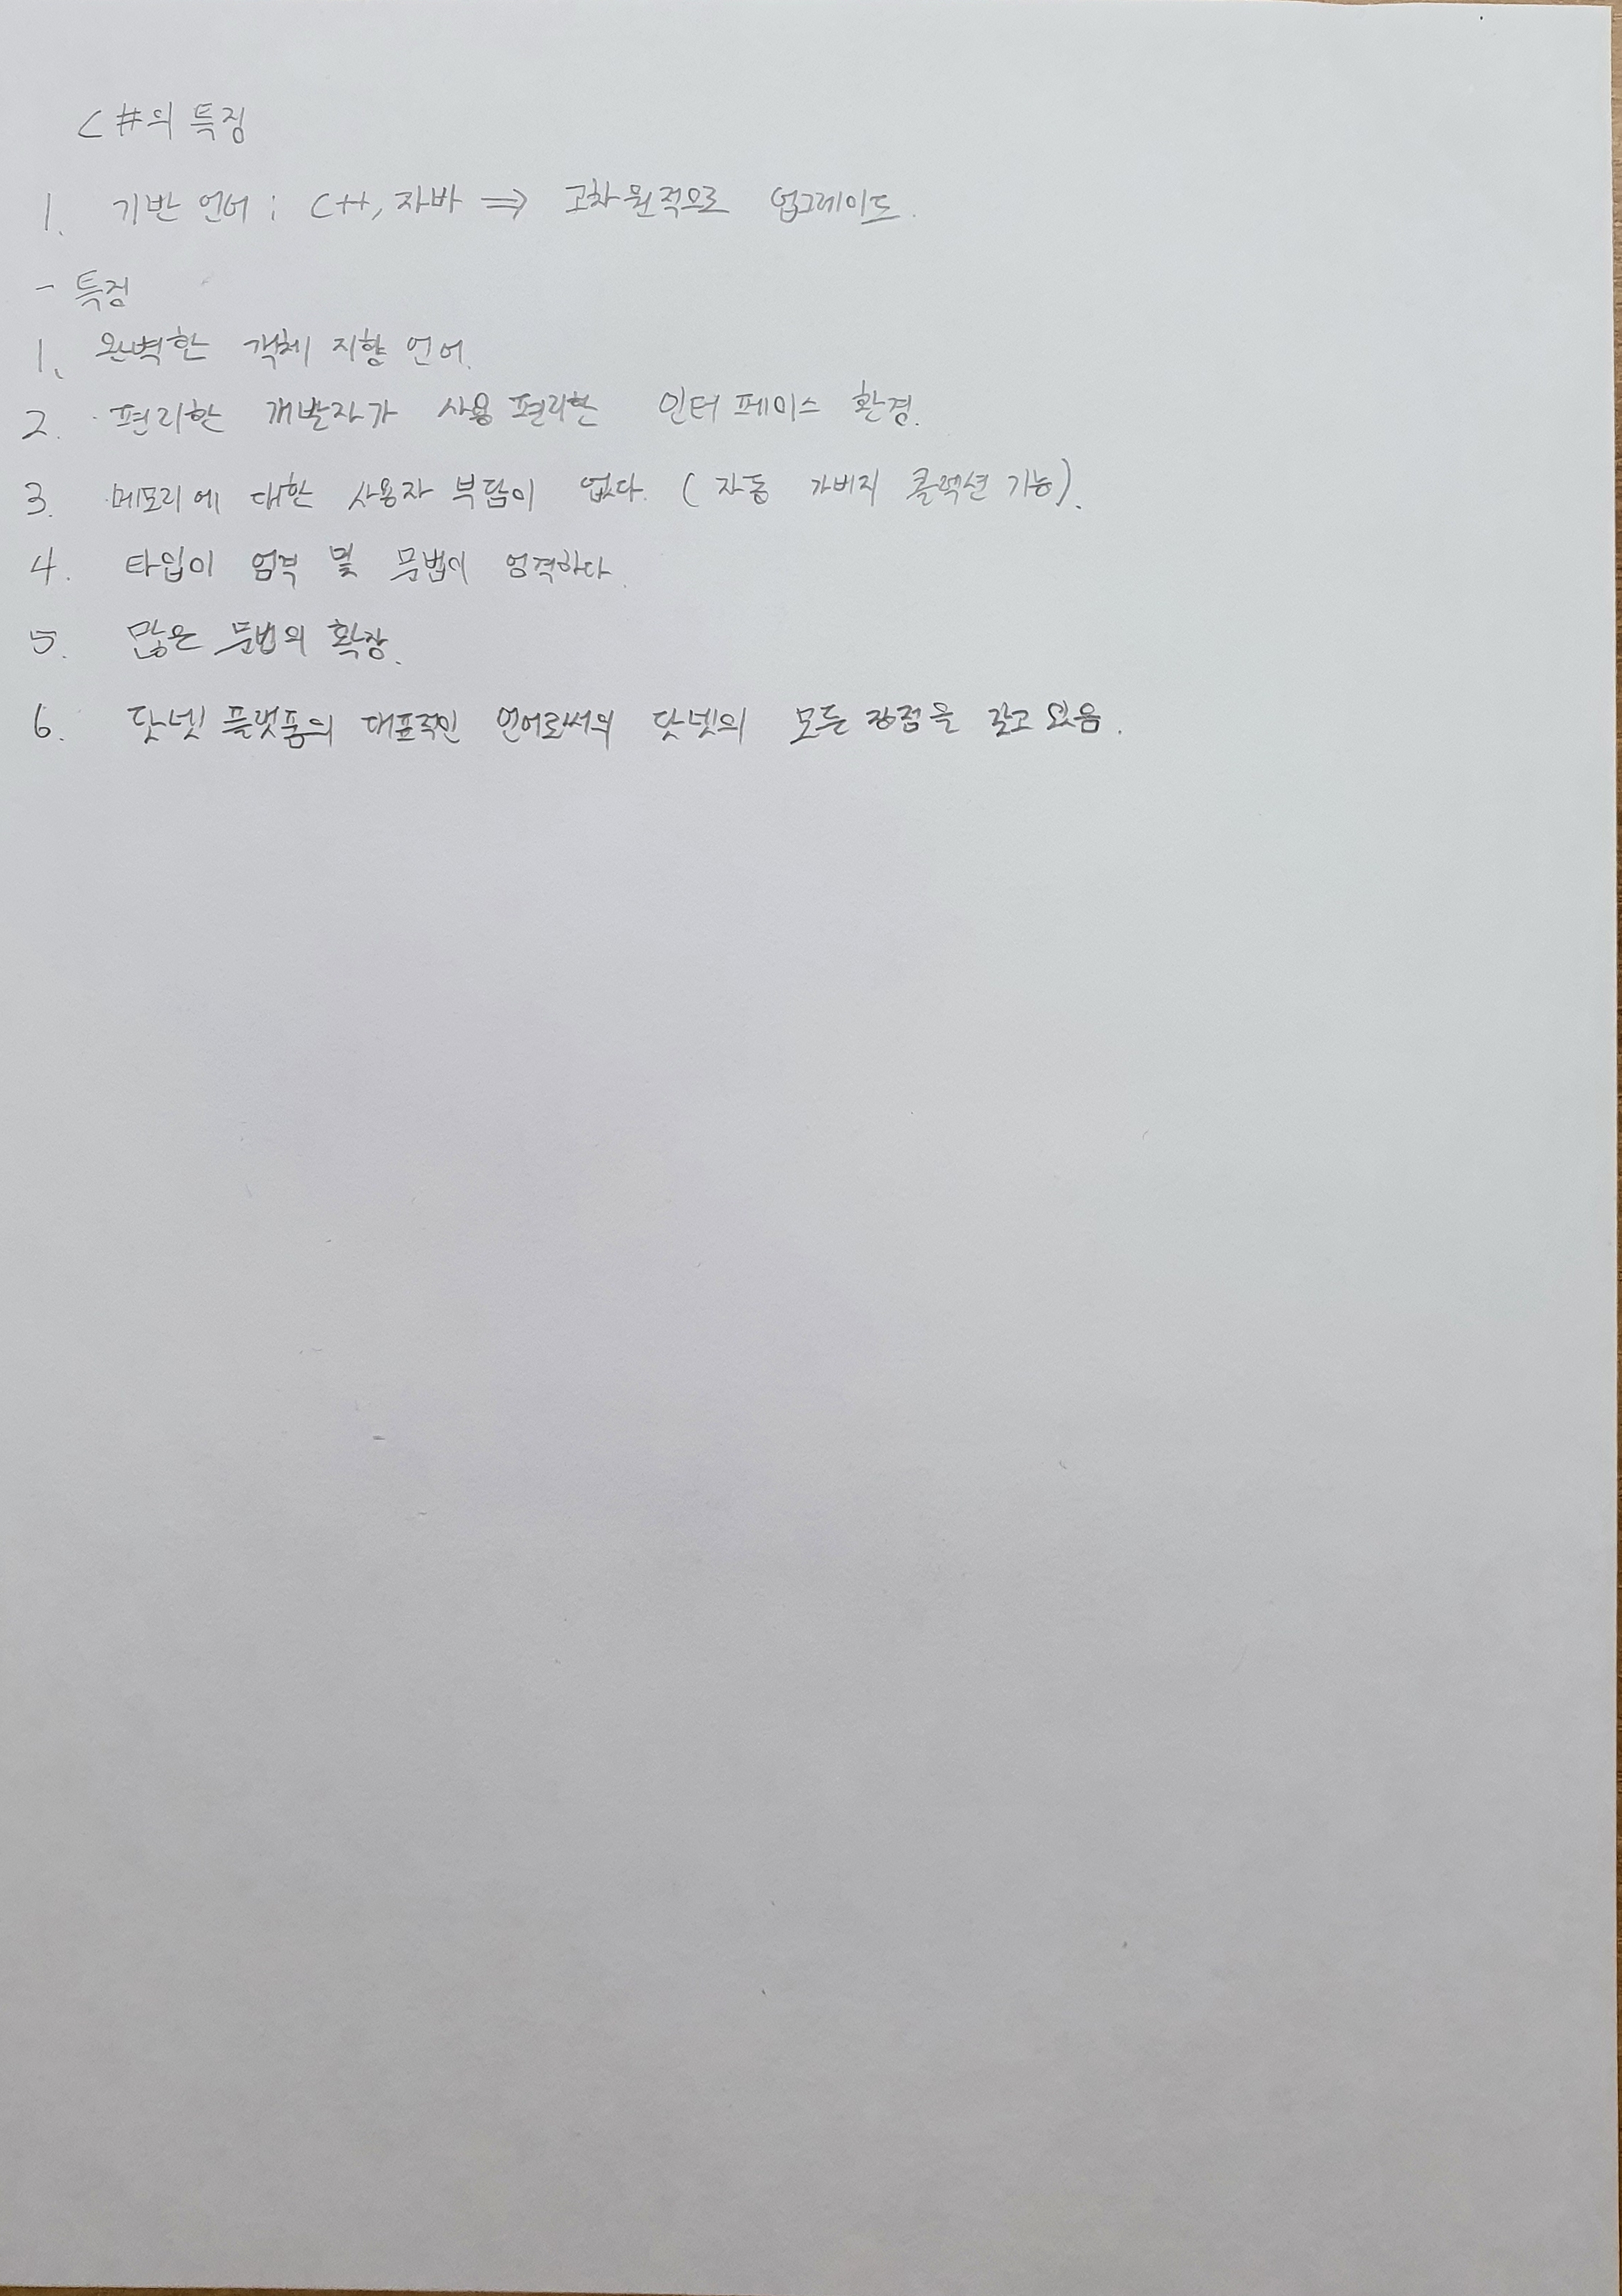 C#의 특징
1. 기반 언어 : C++, 자바 ⇒ 고차원적으로 업그레이드.
- 특징
1. 완벽한 객체 지향 언어.
2. 편리한 개발자가 사용 편리한 인터페이스 환경.
3. 메모리에 대한 사용자 부담이 없다. (자동 가버지 콜렉션 기능).
4. 타입이 엄격 및 문법이 엄격하다.
5. 많은 문법의 확장.
6. 닷넷 플랫폼의 대표적인 언어로써의 닷넷의 모든 장점을 갖고 있음.